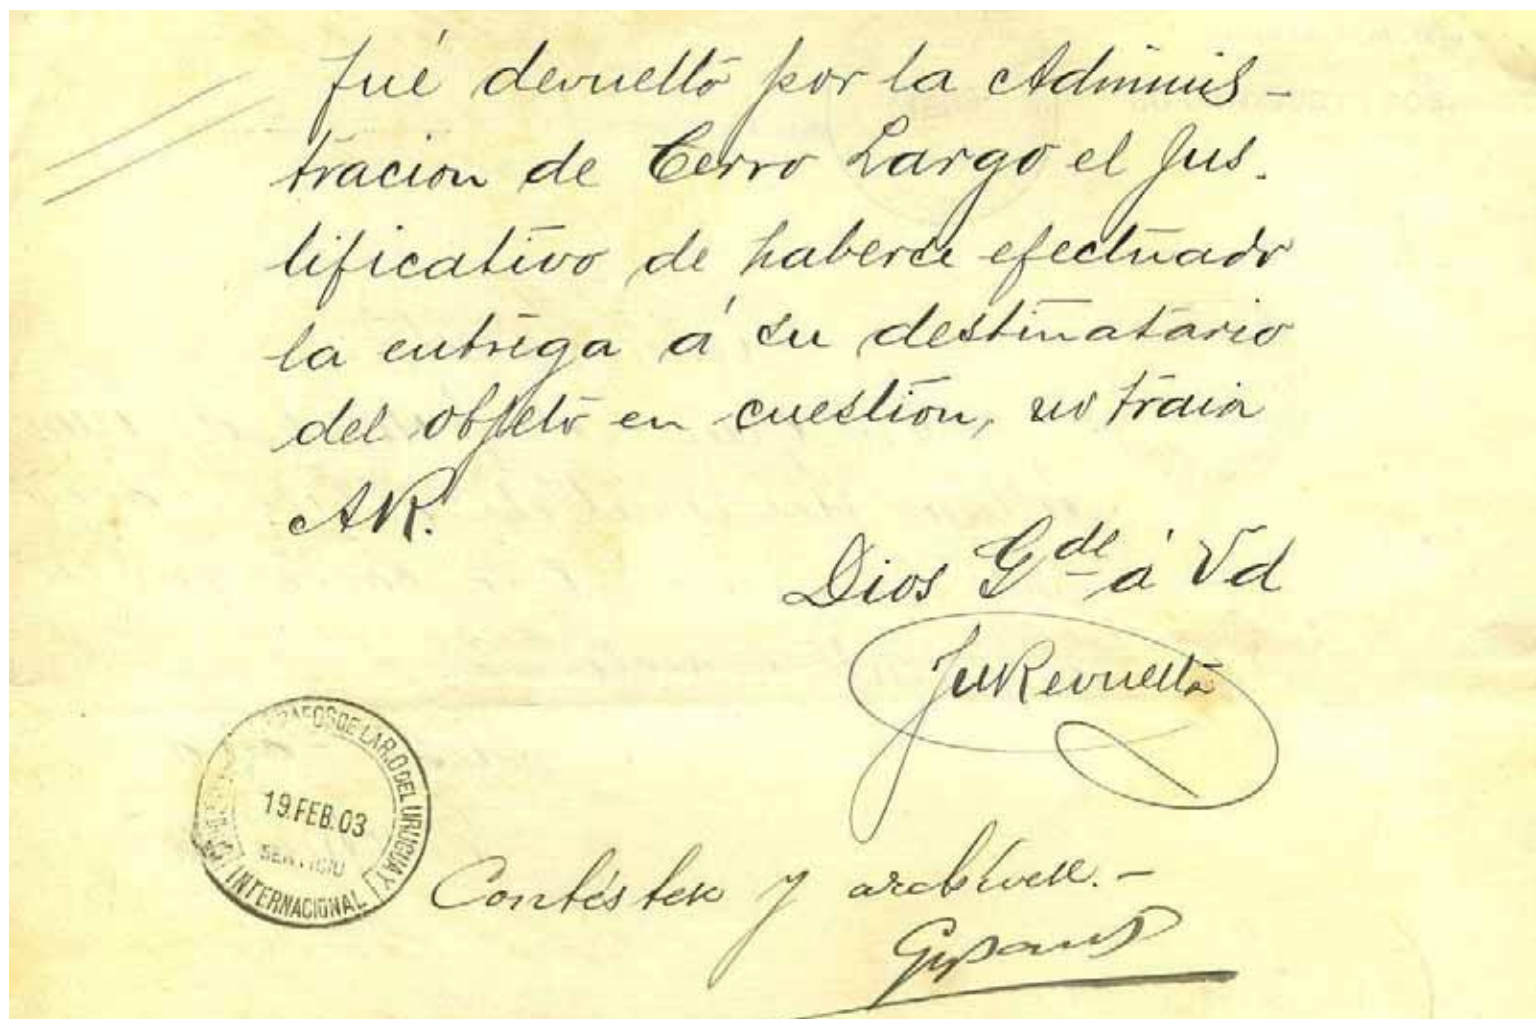 fué devuelto por la Adminis-
tracion de Cerro Largo el Jus.
tificativo de haberce efectuado
la entrega á su destinatario
del objeto en cuestión, no traia
AR.
Dios Gde á Vd
JMRevuelta
DE LA R.O DEL URUGUAY
19.FEB.03
SERVICIO
INTERNACIONAL
Contéstese y archívese.-